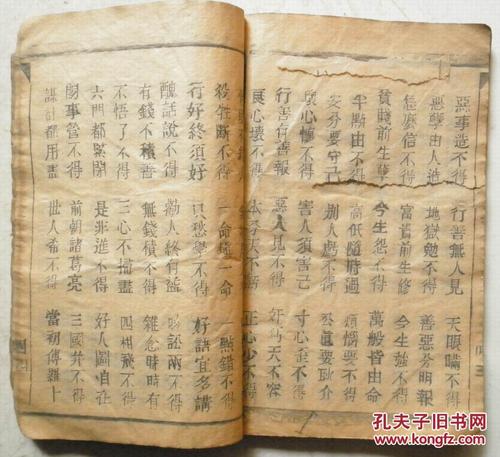 惡事造不得 行善無人見 天眼瞞不得
惡孽由人造 地獄勉不得 善惡分明報
怎麼信不得 富貴前生修 今生強不得
貧賤前生孽 今生怨不得 萬般皆由命
半點由不得 高低隨時過 煩惱要不得
安分要守己 別人虧不得 公直要耿介
良心 不得 害人須害己 寸心歪不得
行善有善報 惡人見不得 奸巧天不容
良心壞不得 本 天不 正心少不得
役牲斷不得 一命還一命 一點錯不得
行好終須好 只愁學不得 好話宜多講
醜話說不得 勸人終有益 唆訟兩不得
有錢不積善 無錢積不得 雜念時時有
不悟了不得 三心不掃盡 四相飛不得
六門都緊閉 是非進不得 好人圖自在
閑事當不得 前朝諸葛亮 三國弃不得
謀計都用盡 世人希不得 當初傅羅卜
孔夫子旧书网
www.kongfz.com